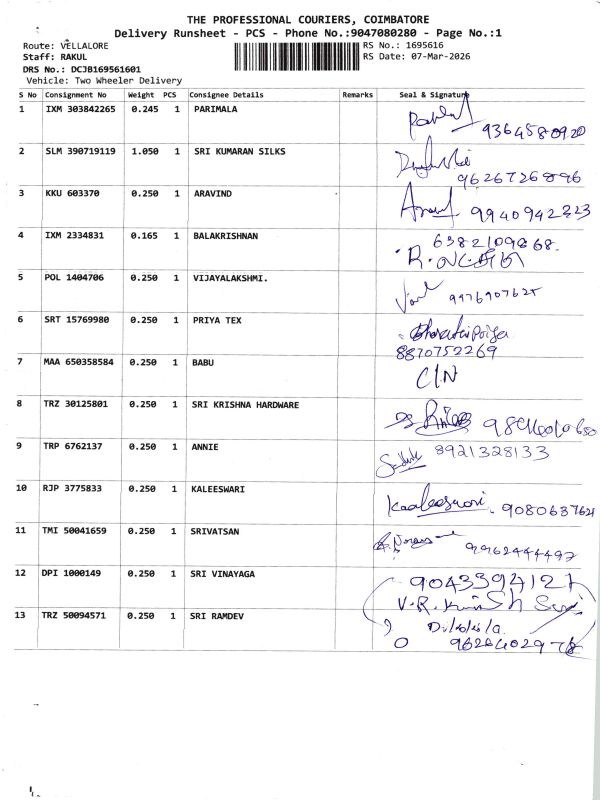 THE PROFESSIONAL COURIERS, COIMBATORE
Delivery Runsheet - PCS - Phone No.:9047080280 - Page No.:1
Route: VELLALORE RS No.: 1695616
Staff: RAKUL RS Date: 07-Mar-2026
DRS No.: DCJB169561601
Vehicle: Two Wheeler Delivery
S No Consignment No Weight PCS Consignee Details Remarks Seal & Signature
1 IXM 303842265 0.245 1 PARIMALA
9364580920
2 SLM 390719119 1.050 1 SRI KUMARAN SILKS
9626726896
3 KKU 603370 0.250 1 ARAVIND
9940942223
4 IXM 2334831 0.165 1 BALAKRISHNAN 6382109868.
5 POL 1404706 0.250 1 VIJAYALAKSHMI.
6 SRT 15769980 0.250 1 PRIYA TEX
8870752269
7 MAA 650358584 0.250 1 BABU
C/N
8 TRZ 30125801 0.250 1 SRI KRISHNA HARDWARE
9 TRP 6762137 0.250 1 ANNIE 8921328133
10 RJP 3775833 0.250 1 KALEESWARI
Kaaleeswari. 9080637621
11 TMI 50041659 0.250 1 SRIVATSAN
9962444497
12 DPI 1000149 0.250 1 SRI VINAYAGA 9043394127
13 TRZ 50094571 0.250 1 SRI RAMDEV